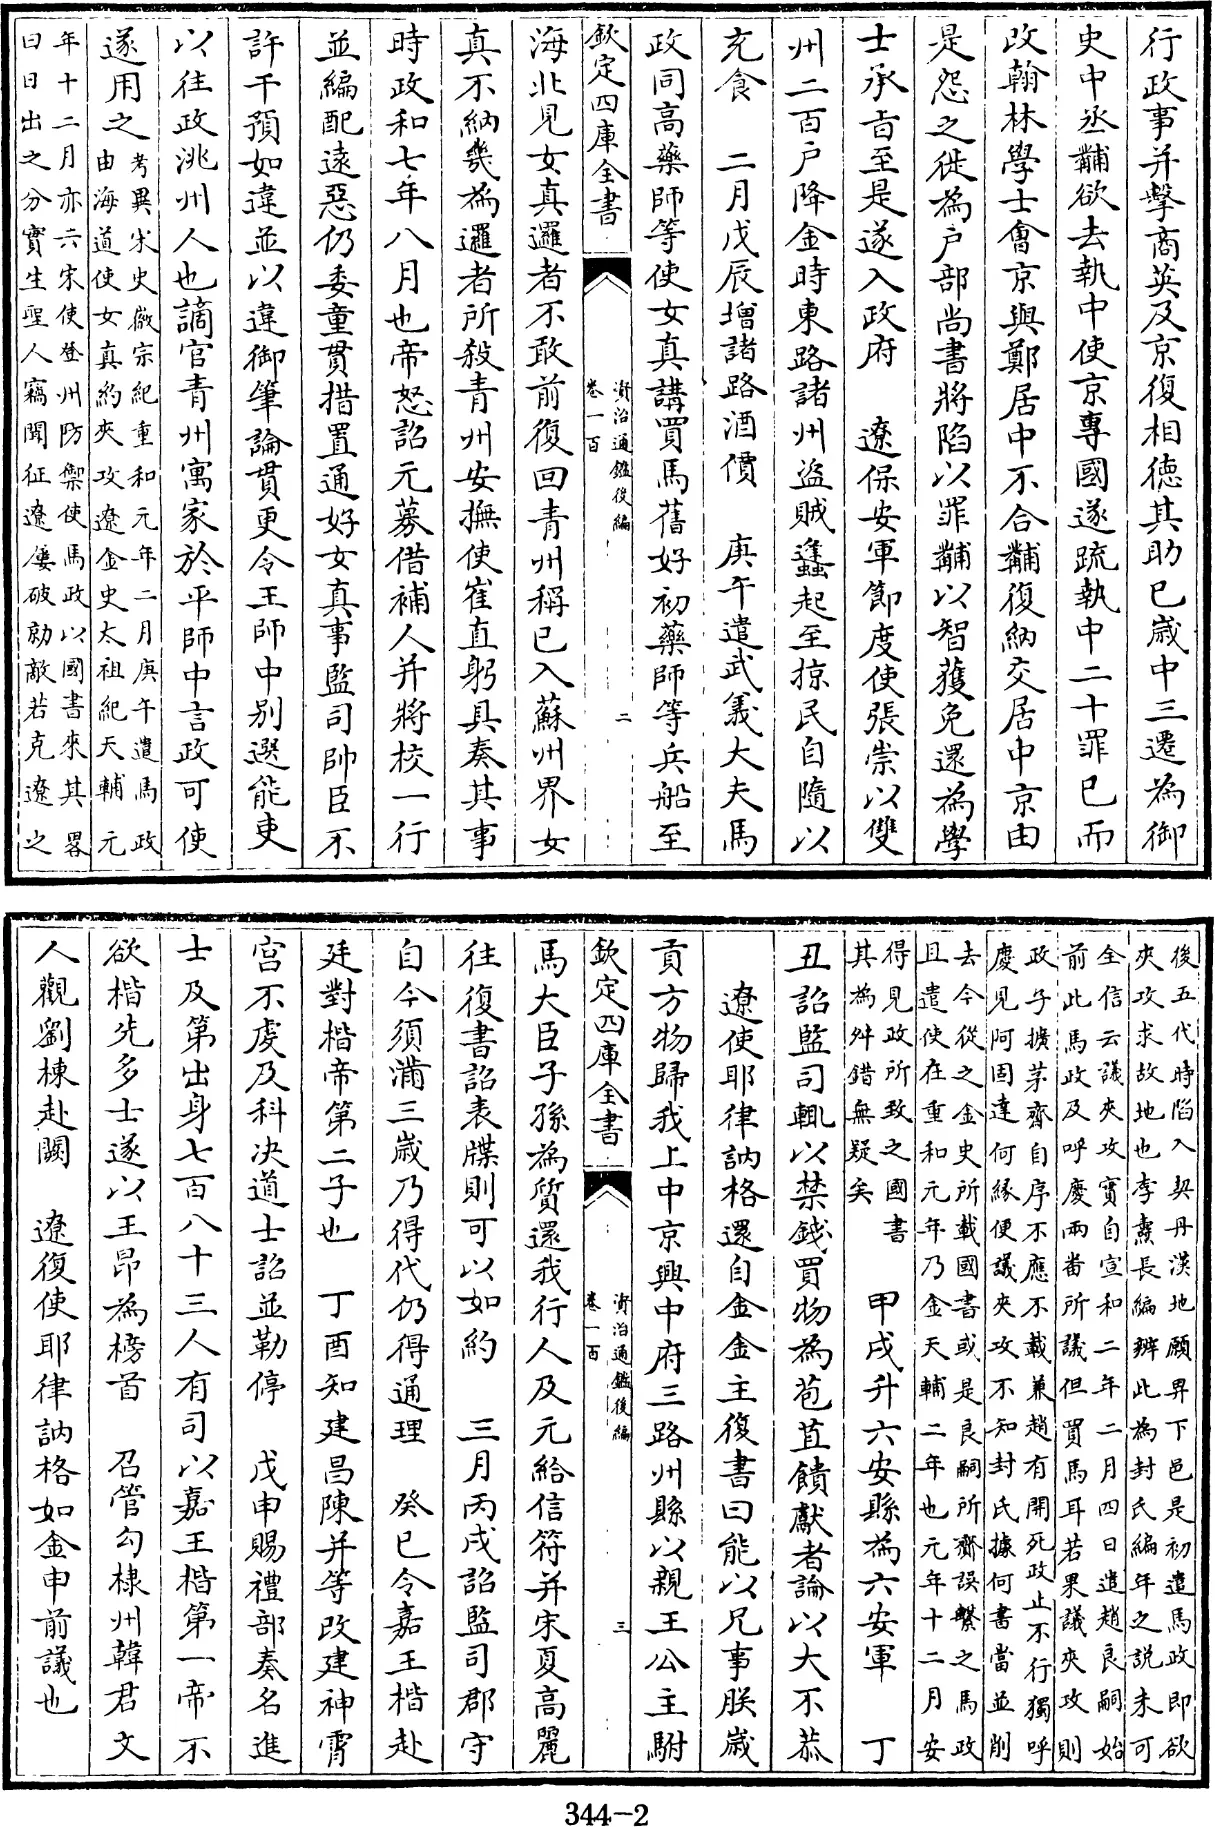 行政事并擊商英及京復相德其助已嵗中三遷為御
史中丞黼欲去執中使京專國遂疏執中二十罪已而
改翰林學士會京與鄭居中不合黼復納交居中京由
是怨之徙為户部尚書將陷以罪黼以智獲免還為學
士承旨至是遂入政府　遼保安軍節度使張崇以雙
州二百户降金時東路諸州盗賊蠭起至掠民自隨以
充食　二月戊辰增諸路酒價　庚午遣武義大夫馬
政同高藥師等使女真講買馬舊好初藥師等兵船至
欽定四庫全書　資治通鑑後編　卷一百　二
海北見女真邏者不敢前復回青州稱已入蘇州界女
真不納幾為邏者所殺青州安撫使崔直躬具奏其事
時政和七年八月也帝怒詔元募借補人并將校一行
並編配逺惡仍委童貫措置通好女真事監司帥臣不
許干預如違並以違御筆論貫更令王師中别選能吏
以往政洮州人也謫官青州寓家於平師中言政可使
遂用之
考異宋史徽宗紀重和元年二月庚午遣馬政
由海道使女真約夾攻遼金史太祖紀天輔元
年十二月亦云宋使登州防禦使馬政以國書來其畧
曰日出之分實生聖人竊聞征遼屢破勍敵若克遼之
後五代時陷入契丹漢地願畀下邑是初遣馬政即欲
夾攻求故地也李燾長編辨此為封氏編年之説未可
全信云議夾攻實自宣和二年二月四日遣趙良嗣始
前此馬政及呼慶兩畨所議但買馬耳若果議夾攻則
政子擴茅齋自序不應不載兼趙有開死政止不行獨呼
慶見阿固達何縁便議夾攻不知封氏據何書當並削
去今從之金史所載國書或是良嗣所齎誤繫之馬政
且遣使在重和元年乃金天輔二年也元年十二月安
得見政所致之國書
其為舛錯無疑矣
甲戌升六安縣為六安軍　丁
丑詔監司輒以禁錢買物為苞苴饋獻者論以大不恭
遼使耶律訥格還自金金主復書曰能以兄事朕嵗
貢方物歸我上中京興中府三路州縣以親王公主駙
欽定四庫全書　資治通鑑後編　卷一百　三
馬大臣子孫為質還我行人及元給信符并宋夏高麗
往復書詔表牒則可以如約　三月丙戌詔監司郡守
自今須滿三嵗乃得代仍得通理　癸巳令嘉王楷赴
廷對楷帝第二子也　丁酉知建昌陳并等改建神霄
宫不䖍及科決道士詔並勒停　戊申賜禮部奏名進
士及第出身七百八十三人有司以嘉王楷第一帝不
欲楷先多士遂以王昂為榜首　召管勾棣州韓君文
人觀劉棟赴闕　遼復使耶律訥格如金申前議也
344-2